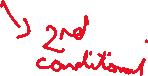 2nd
conditional